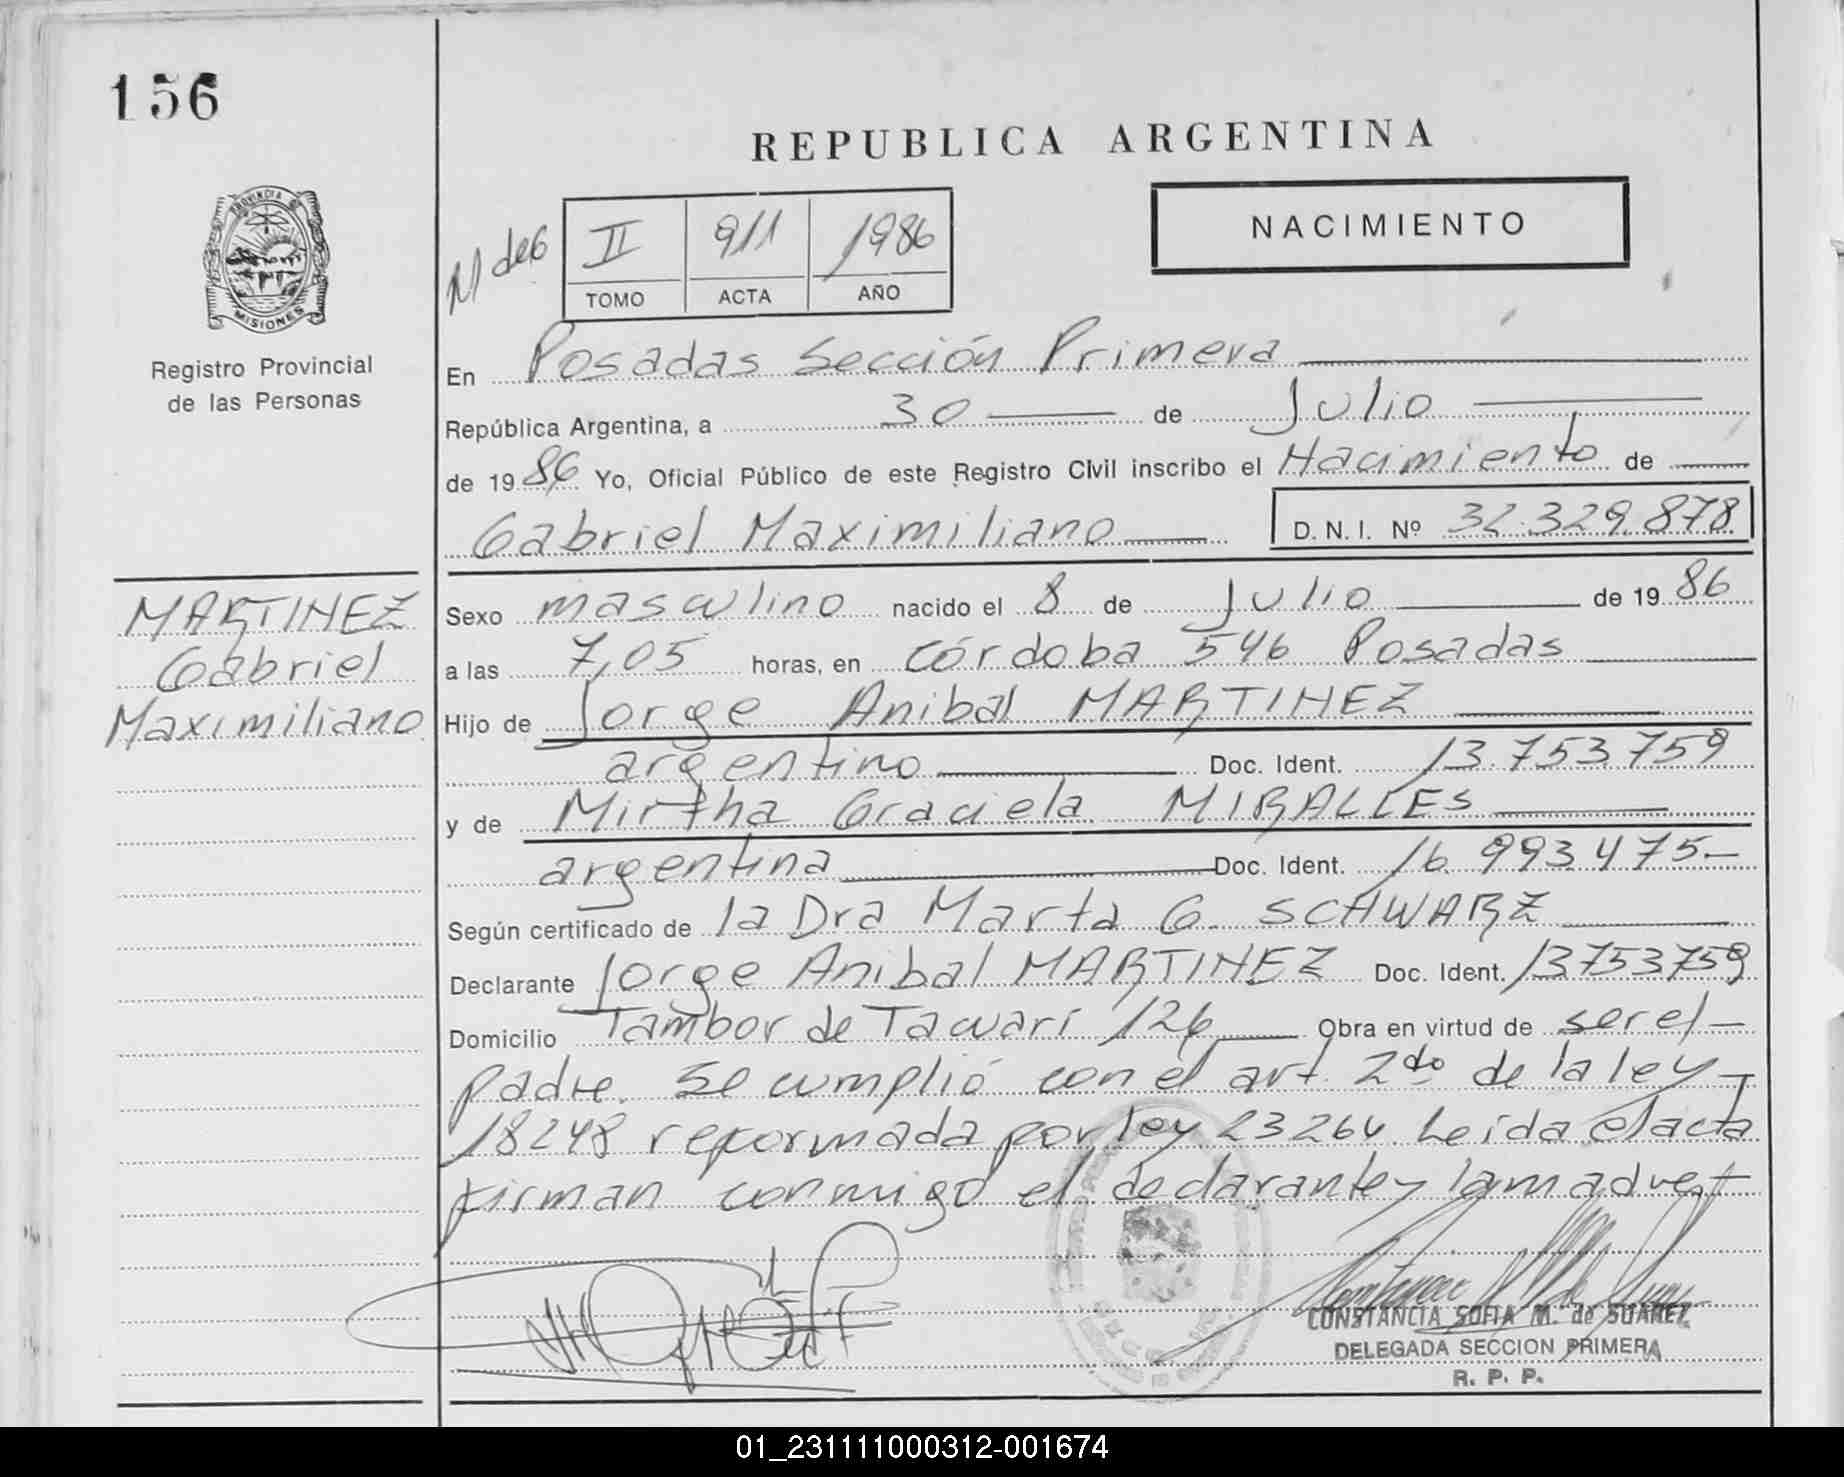 156
REPUBLICA ARGENTINA
NACIMIENTO
II 911 1986
TOMO ACTA AÑO
PROVINCIA DE
MISIONES
Registro Provincial
de las Personas
En Posadas Sección Primera
República Argentina, a 30 de Julio
de 1986 Yo, Oficial Público de este Registro Civil inscribo el Nacimiento de
Gabriel Maximiliano D. N. I. Nº 32.329.878
MARTINEZ
Gabriel
Maximiliano
Sexo masculino nacido el 8 de Julio de 1986
a las 7,05 horas, en córdoba 546 Posadas
Hijo de Jorge Anibal MARTINEZ
argentino Doc. Ident. 13.753.759
y de Mirtha Graciela MIRALLES
argentina Doc. Ident. 16.993.475-
Según certificado de la Dra Marta G. SCHWARZ
Declarante Jorge Anibal MARTINEZ Doc. Ident. 13753759
Domicilio Tambor de Tacuarí 126 Obra en virtud de ser el
padre. Se cumplió con el art. 2do de la ley
18248 reformada por ley 23264. Leída el acta
firman conmigo el declarante y
CONSTANCIA SOFIA M. de SUAREZ
DELEGADA SECCION PRIMERA
R. P. P.
01_231111000312-001674